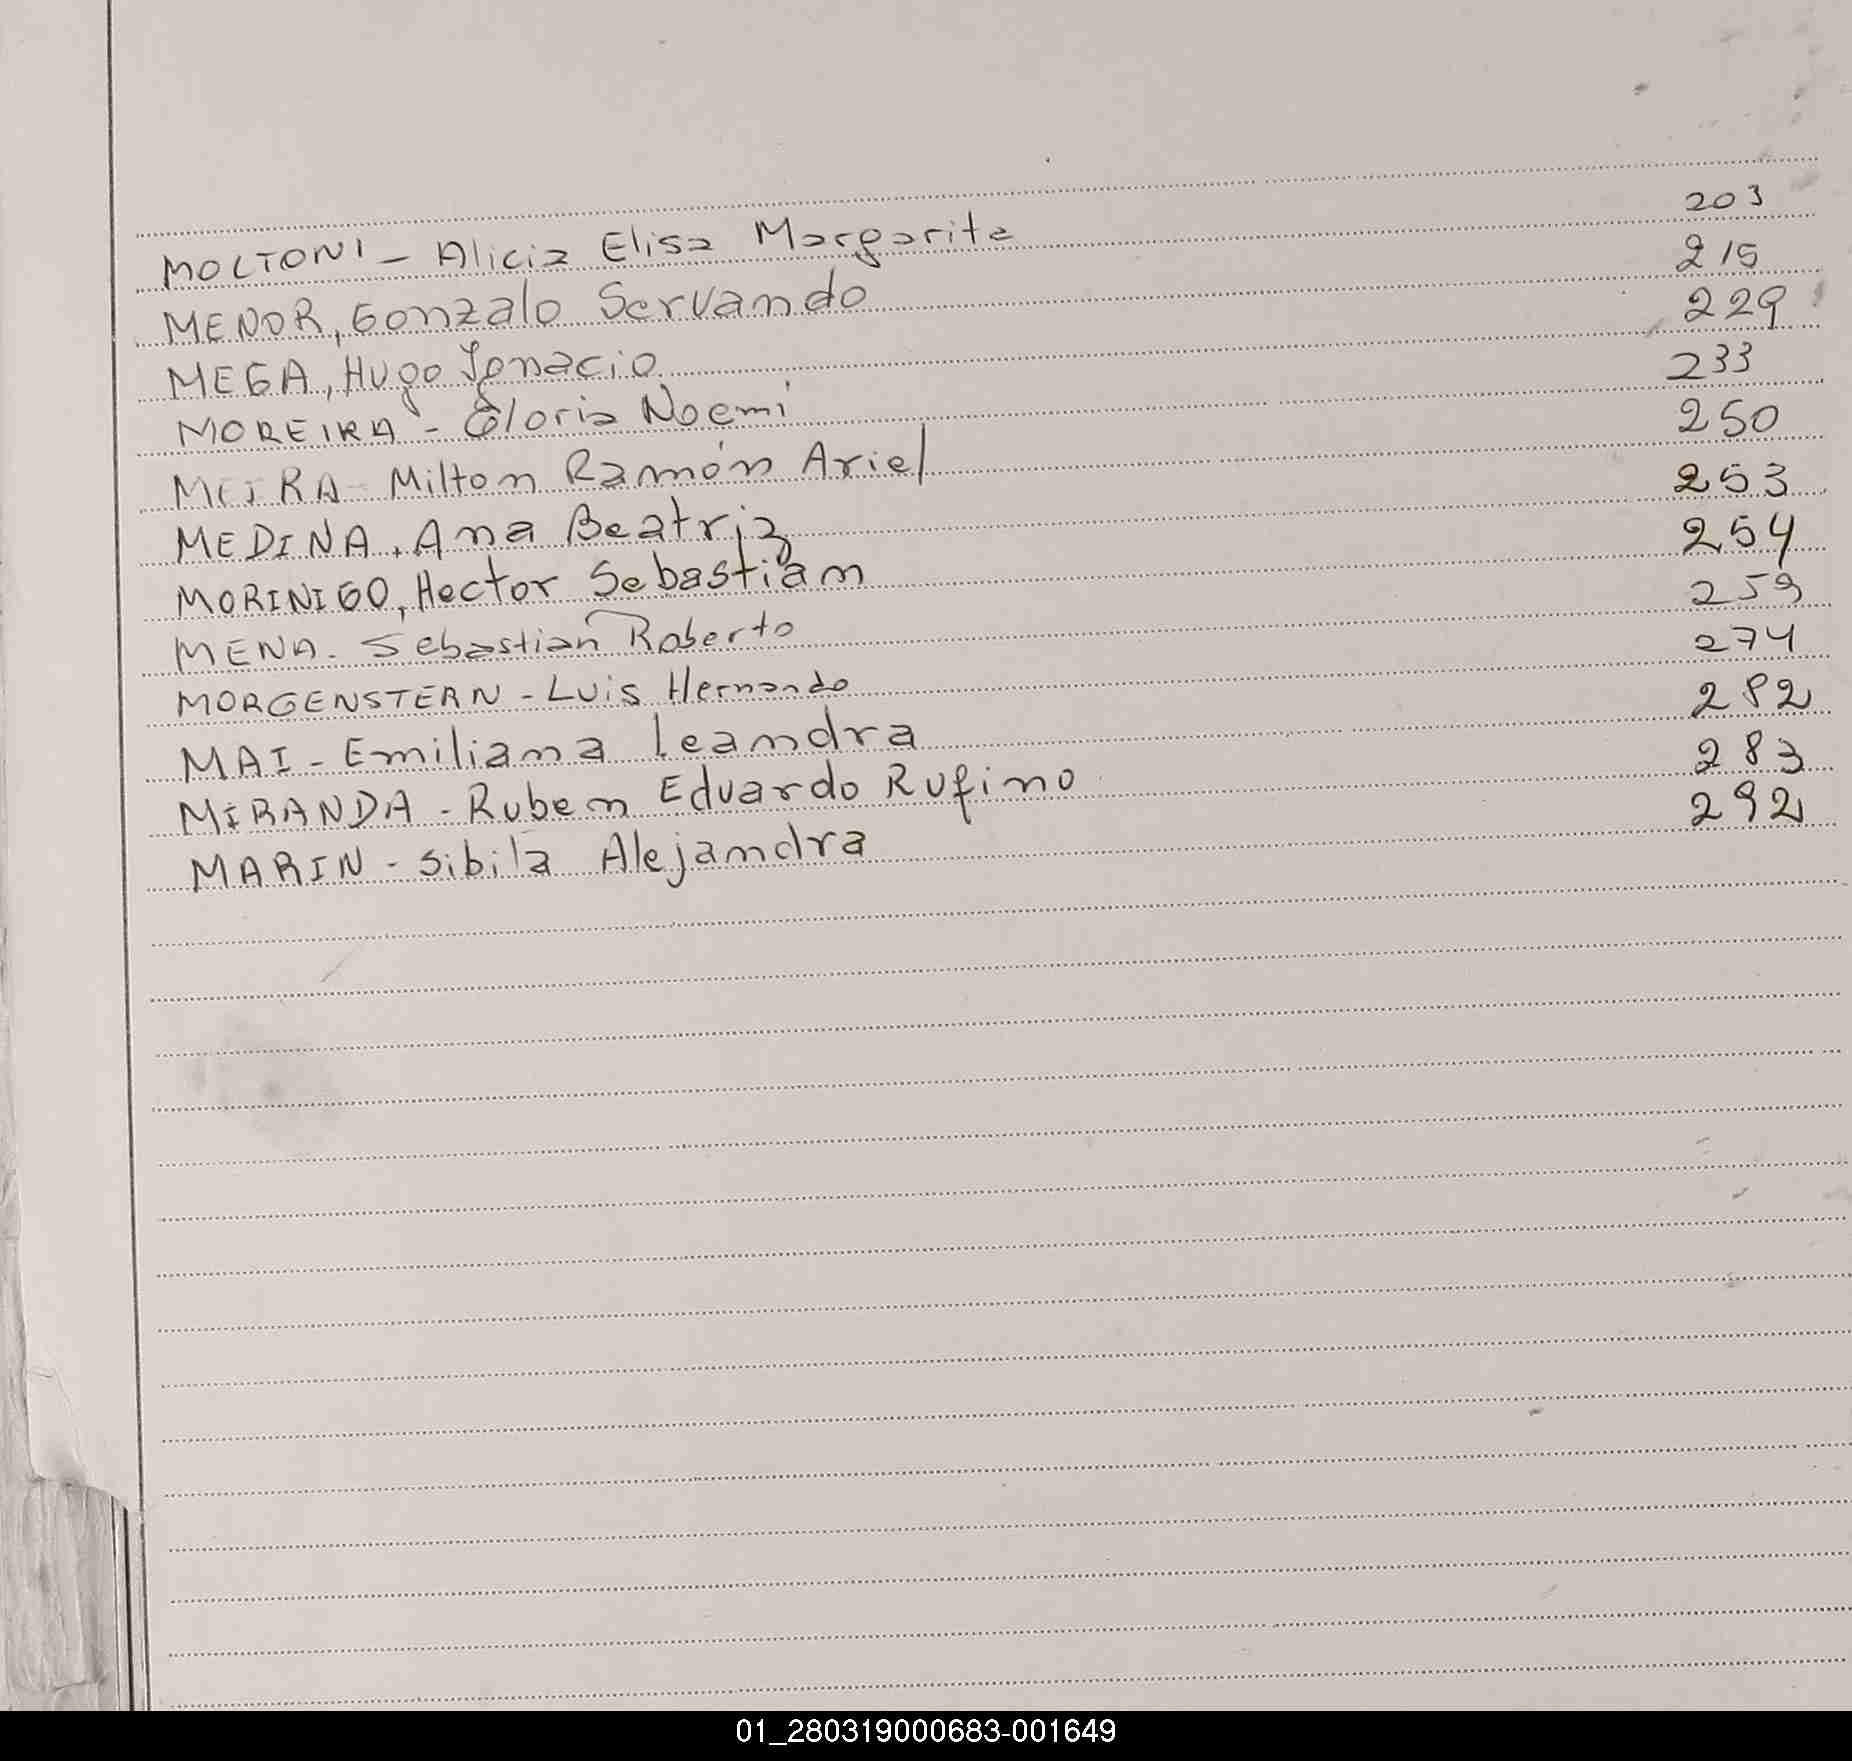 MOLTONI - Alicia Elisa Margarita 203
MENOR, Gonzalo Servando 215
MEGA, Hugo Ignacio 229
MOREIRA - Gloria Noemí 233
MEIRA - Milton Ramón Ariel 250
MEDINA, Ana Beatriz 253
MORINIGO, Hector Sebastián 254
MENA - Sebastian Roberto 259
MORGENSTERN - Luis Hernando 274
MAI - Emiliana Leandra 282
MIRANDA - Ruben Eduardo Rufino 283
MARIN - Sibila Alejandra 292
01_280319000683-001649